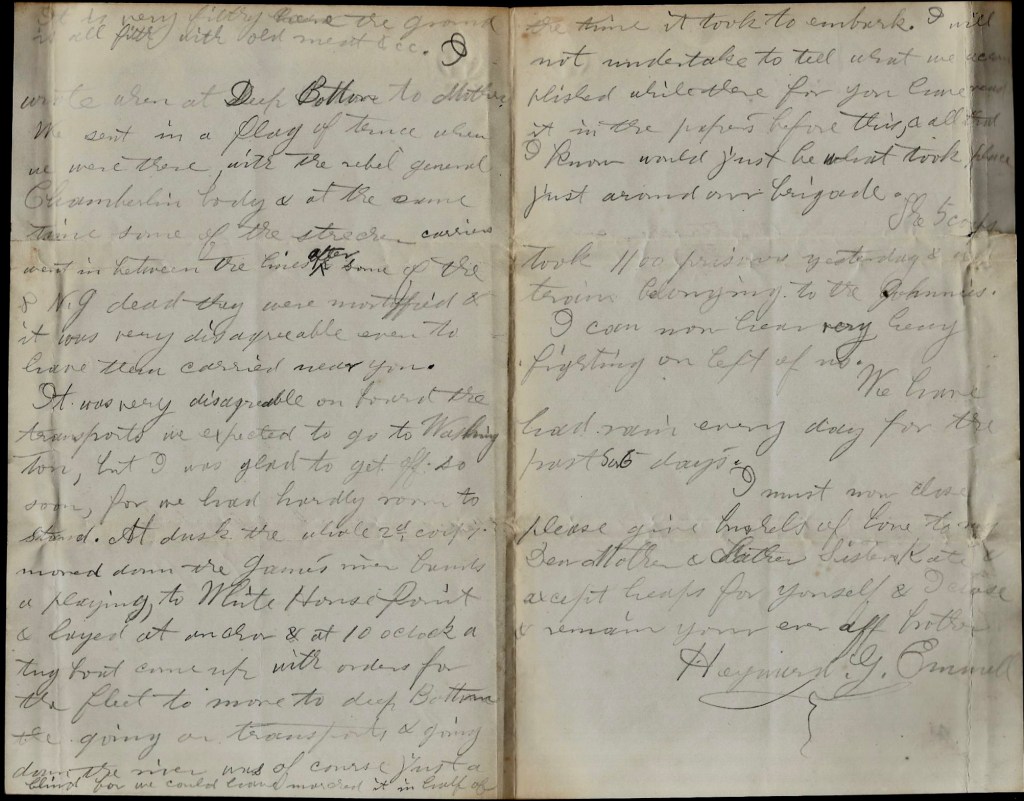 It is very filthy here the ground
is all filth with old meat &c. I
wrote when at Deep Bottom to Mother
We sent in a flag of truce when
we were there, with the rebel general
Chamberlin body & at the same
time some of the strecher carriers
went in between the lines after some of the
N.J dead they were mortified &
it was very disagreeable even to
have them carried near you.
It was very disagreable on board the
transports we expected to go to Washing
ton, but I was glad to get off so
soon, for we had hardly room to
stand. At dusk the whole 2d. corps
moved down the James river bands
a playing, to White House Point
& layed at anchor & at 10 oclock a
tug boat came up with orders for
the fleet to move to deep Bottom
the going on transports & going
down the river was of course just a
blind for we could have marched it in half of
the time it took to embark. I will
not undertake to tell what we accom
plished while there for you have read
it in the papers before this, & all that
I know would just be what took place
just around our brigade.
The 5 corps
took 1100 prisoners yesterday &
train belonging to the Johnnies.
I can now hear very heavy
fighting on left of us.
We have
had rain every day for the
past 5 or 6 days.
I must now close
please give bushels of love to my
Dear Mother & Father Sister Kate &
except heaps for yourself & I close
& remain your ever aff brother
Heyward G. Emmell